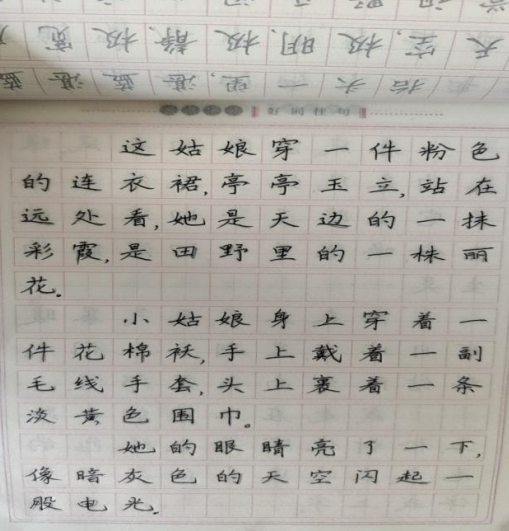 天空,极明,极静,极宽
抬头一望,
这姑娘穿一件粉色
的连衣裙,亭亭玉立,站在
远处看,她是天边的一抹
彩霞,是田野里的一株丽
花。
小姑娘身上穿着一
件花棉袄,手上戴着一副
毛线手套,头上裹着一条
淡黄色围巾。
她的眼睛亮了一下,
像暗灰色的天空闪起一
股电光。